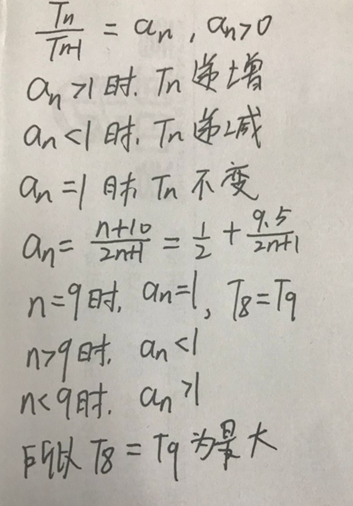 Tn/Tn-1 = an , an>0
an>1时. Tn递增
an<1时. Tn递减
an=1时. Tn不变
an= n+10/2n+1 = 1/2 + 9.5/2n+1
n=9时. an=1, T8=T9
n>9时. an<1
n<9时. an>1
所以 T8=T9为最大